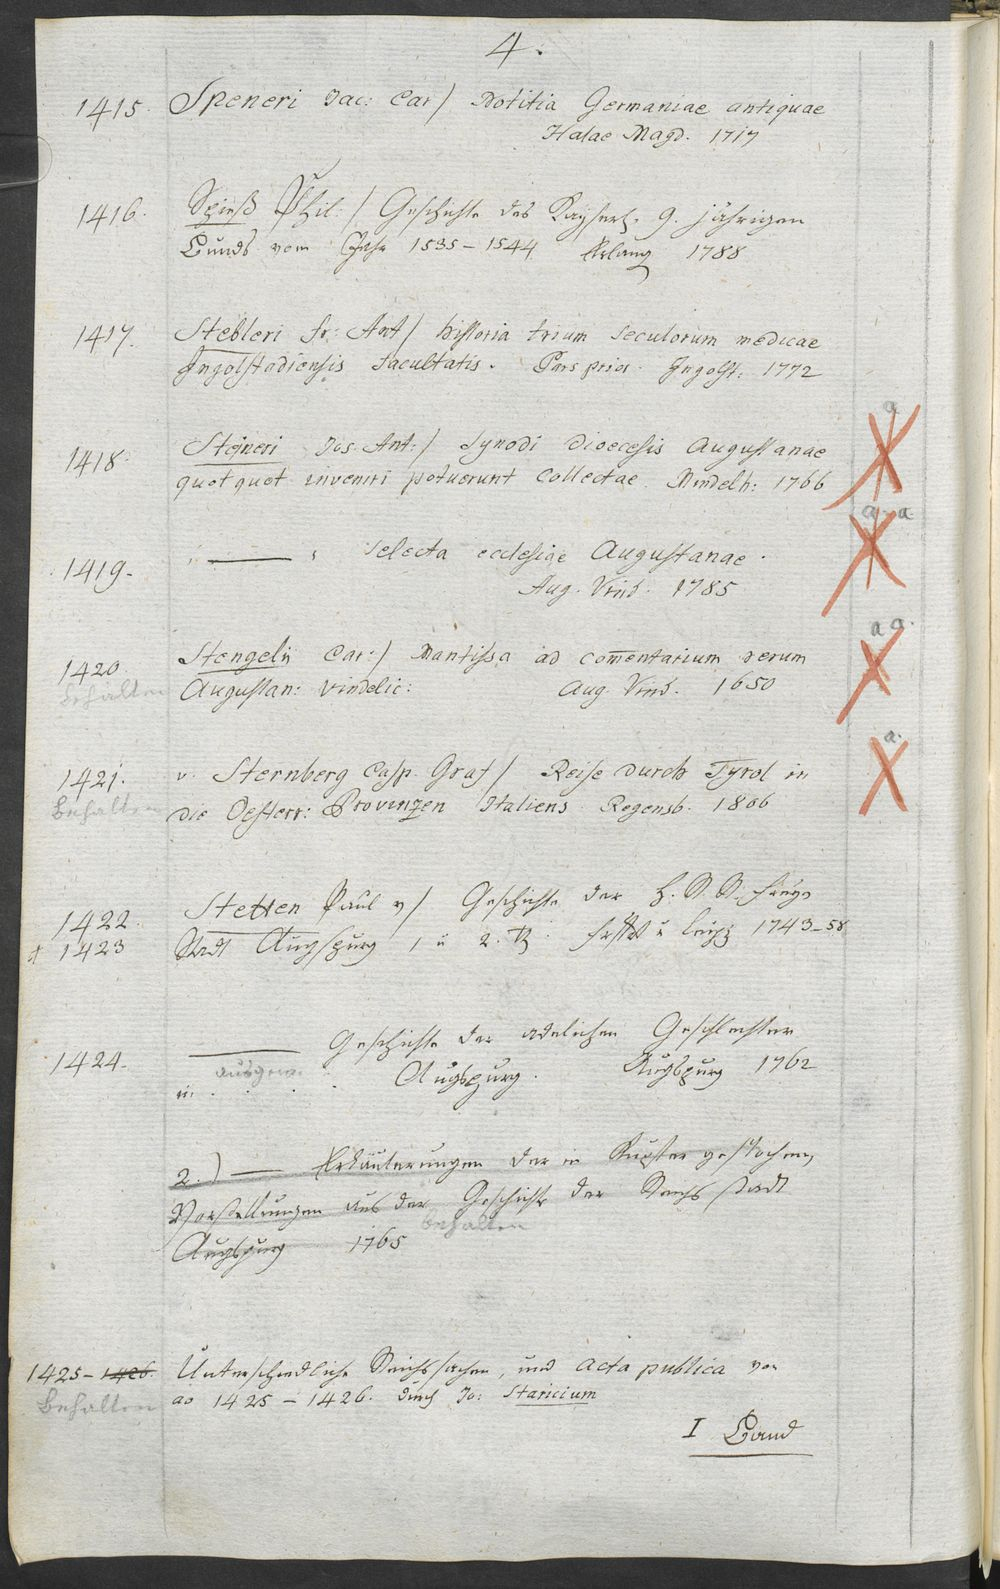 4.
1415. Speneri Jac: Car / Notitia Germaniae antiquae
Halae Magd. 1717
1416. Spieß Phil: / Geschichte des Kayserl. 9. jährigen
Bunds vom Jahr 1535 – 1544. Erlang 1788
1417. Stebleri fr: Ant / historia trium seculorum medicae
Ingolstadiensis facultatis. Pars prior. Ingolst: 1772
a
1418. Steineri Jos. Ant: / Synodi dioecesis Augustanae
quot quot inveniri potuerunt collectae. Mindelh: 1766
a – a.
1419. ——— selecta ecclesiae Augustanae.
Aug. Vind. 1785
a a.
1420. Stengelii Car: / Mantissa ad com̄entarium rerum
behalten Augustan: vindelic: Aug. Vind. 1650
a.
1421. v. Sternberg Casp. Graf / Reise durch Tyrol in
behalten die Oesterr: Provinzen Italiens Regensb. 1806
1422. Stetten Paul v / Geschichte der H. R. R. freyen
+ 1423 Stadt Augspurg 1 u 2. Th. Frkft u Leipz 1743–58
1424. ——— Geschichte der adelichen Geschlechter
in Augspurg. Augspurg 1762
2.) —— Erläuterungen der in Kupfer gestochenen
Vorstellungen aus der Geschichte der Reichsstadt
behalten
Augspurg 1765
1425 – 1426. Unterschiedliche Reichssachen, und acta publica von
behalten ao 1425 – 1426. durch Jo: Staricium
I Band